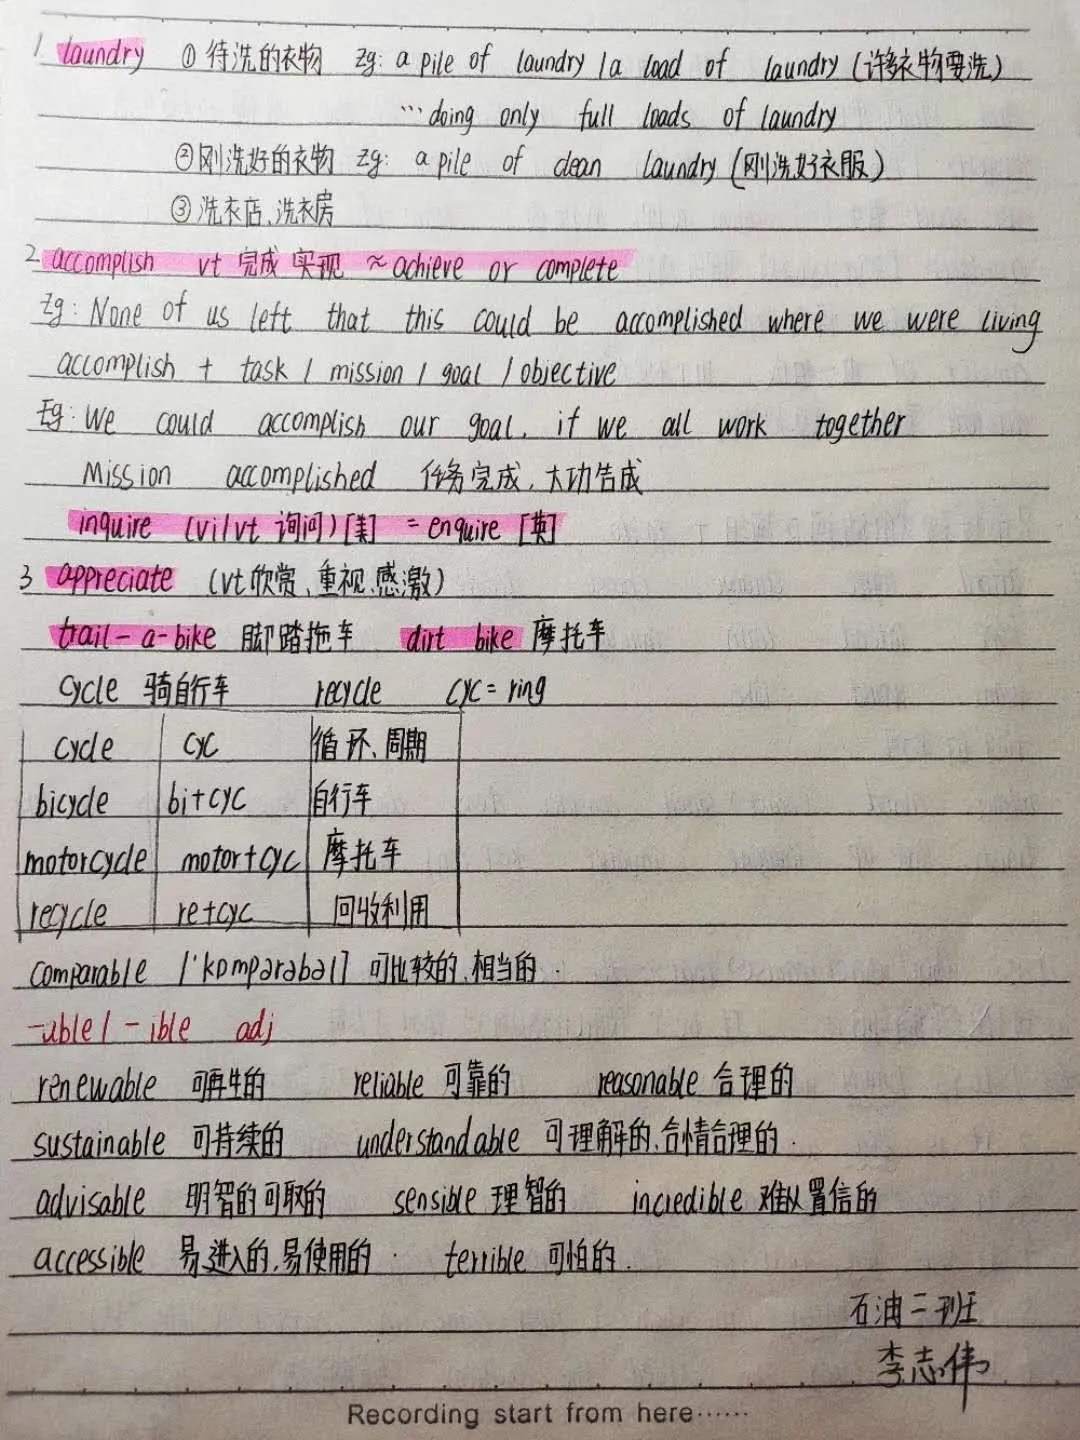 1. laundry ① 待洗的衣物 Eg: a pile of laundry / a load of laundry (许多衣物要洗)
… doing only full loads of laundry
② 刚洗好的衣物 Eg: a pile of clean laundry (刚洗好衣服)
③ 洗衣店、洗衣房
2 accomplish vt 完成 实现 ≈ achieve or complete
Eg: None of us left that this could be accomplished where we were living
accomplish + task / mission / goal / objective
Eg: We could accomplish our goal, if we all work together
Mission accomplished 任务完成, 大功告成
inquire (vi/vt 询问) [美] = enquire [英]
3 appreciate (vt 欣赏、重视、感激)
trail-a-bike 脚踏拖车 dirt bike 摩托车
cycle 骑自行车 recycle cyc = ring
cycle cyc 循环、周期
bicycle bi+cyc 自行车
motorcycle motor+cyc 摩托车
recycle re+cyc 回收利用
comparable /'kɒmpərəbəl] 可比较的、相当的.
-able / -ible adj
renewable 可再生的 reliable 可靠的 reasonable 合理的
sustainable 可持续的 understandable 可理解的、合情合理的.
advisable 明智的可取的 sensible 理智的 incredible 难以置信的
accessible 易进入的,易使用的. terrible 可怕的.
石油二班
李志伟
Recording start from here……